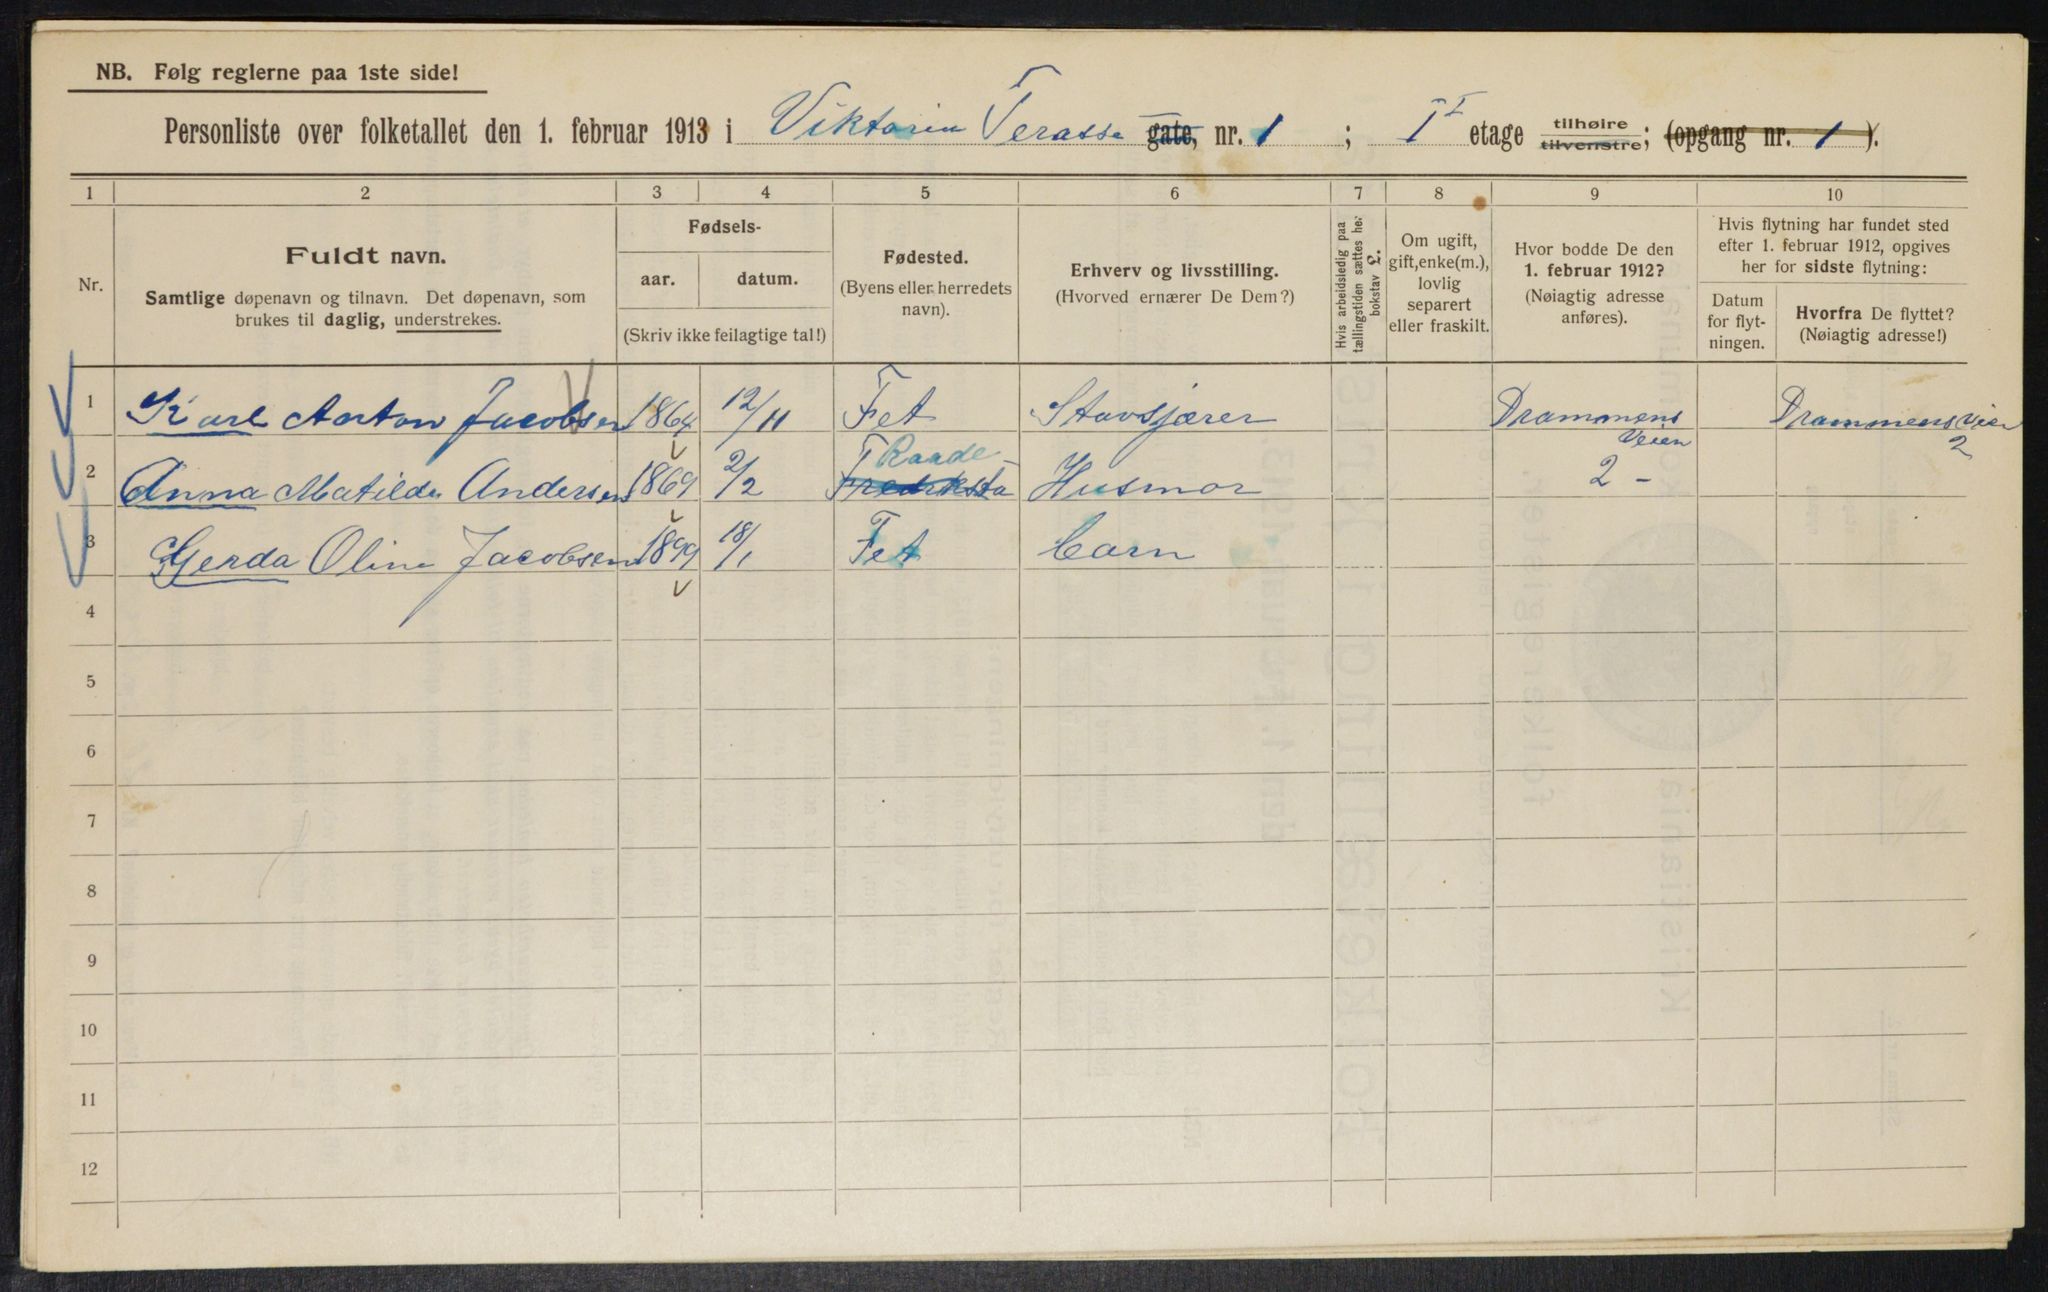 NB. Følg reglerne paa 1ste side!
Personliste over folketallet den 1. februar 1913 i Viktoria Terasse gate, nr. 1 ; I etage tilhøire tilvenstre; (opgang nr. 1 ).
1 2 3 4 5 6 7 8 9 10
Nr.
Fuldt navn.
Samtlige døpenavn og tilnavn. Det døpenavn, som
brukes til daglig, understrekes.
Fødsels-
aar. datum.
(Skriv ikke feilagtige tal!)
Fødested.
(Byens eller herredets
navn).
Erhverv og livsstilling.
(Hvorved ernærer De Dem?)
Hvis arbeidsledig paa
tællingstiden sættes her
bokstav
Om ugift,
gift, enke(m.),
lovlig
separert
eller fraskilt.
Hvor bodde De den
1. februar 1912?
(Nøiagtig adresse
anføres).
Hvis flytning har fundet sted
efter 1. februar 1912, opgives
her for sidste flytning:
Datum
for flyt-
ningen.
Hvorfra De flyttet?
(Nøiagtig adresse!)
1 Karl Anton Jacobsen 1864 12/11 Fet Stavsjærer Drammens Veien Drammensveien 2
2 Anna Matilde Andersen 1869 2/2 Fredriksta Raade Husmor 2 -
3 Gerda Oline Jacobsen 1899 18/1 Fet barn
4
5
6
7
8
9
10
11
12